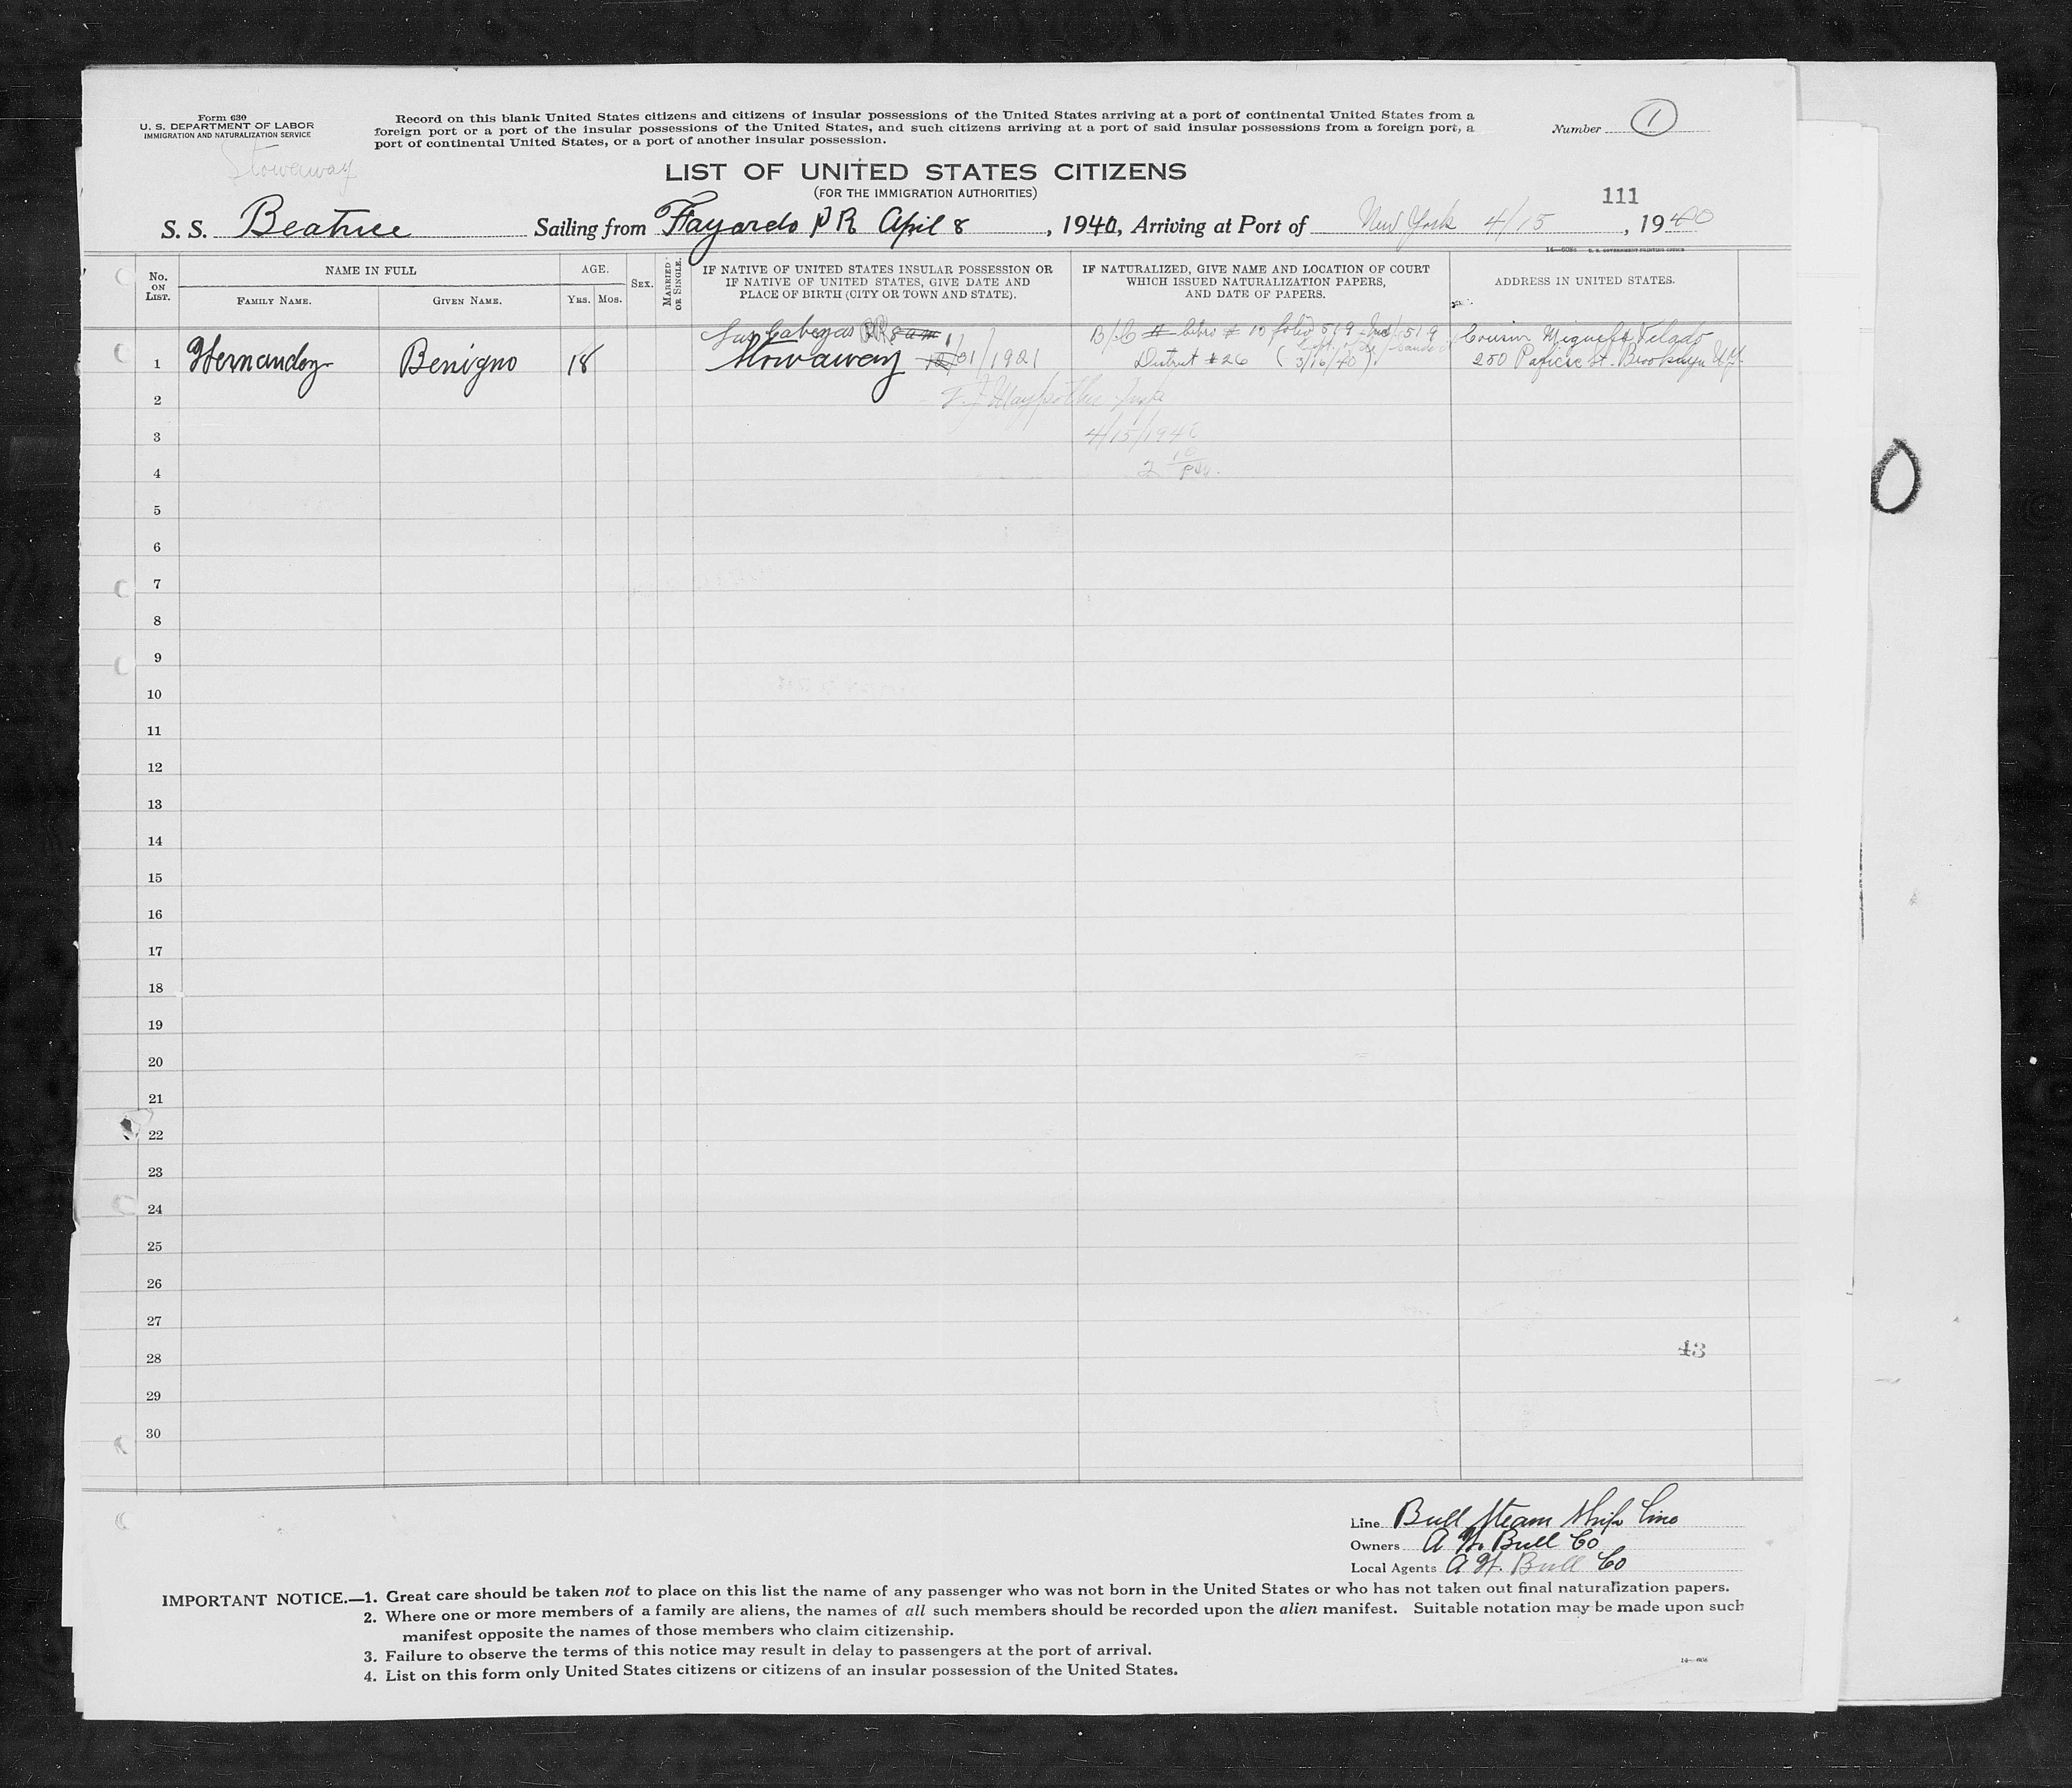 Form 630
U. S. DEPARTMENT OF LABOR
IMMIGRATION AND NATURALIZATION SERVICE
Stowaway
Record on this blank United States citizens and citizens of insular possessions of the United States arriving at a port of continental United States from a
foreign port or a port of the insular possessions of the United States, and such citizens arriving at a port of said insular possessions from a foreign port, a
port of continental United States, or a port of another insular possession.
Number 1
LIST OF UNITED STATES CITIZENS
(FOR THE IMMIGRATION AUTHORITIES)
111
S. S. Beatrice Sailing from Fayardo P R April 8, 1940, Arriving at Port of New York 4/15, 1940
No. ON LIST.
NAME IN FULL
FAMILY NAME.
GIVEN NAME.
AGE.
YRS. MOS.
SEX.
MARRIED OR SINGLE.
IF NATIVE OF UNITED STATES INSULAR POSSESSION OR
IF NATIVE OF UNITED STATES, GIVE DATE AND
PLACE OF BIRTH (CITY OR TOWN AND STATE).
IF NATURALIZED, GIVE NAME AND LOCATION OF COURT
WHICH ISSUED NATURALIZATION PAPERS,
AND DATE OF PAPERS.
ADDRESS IN UNITED STATES.
Cabezas PR
B/C # libro # 10 folio 519 519
Cousin Velado
1 Hernandez Benigno 18 Stowaway /1921 District #26 (3/16/40). 250 Pacific St. Brooklyn N.Y.
2
3 4/15/1940
4
5
6
7
8
9
10
11
12
13
14
15
16
17
18
19
20
21
22
23
24
25
26
27
28
43
29
30
Line Bull Steam Ship Line
Owners A H. Bull Co
Local Agents A H. Bull Co
IMPORTANT NOTICE.—1. Great care should be taken not to place on this list the name of any passenger who was not born in the United States or who has not taken out final naturalization papers.
2. Where one or more members of a family are aliens, the names of all such members should be recorded upon the alien manifest. Suitable notation may be made upon such
manifest opposite the names of those members who claim citizenship.
3. Failure to observe the terms of this notice may result in delay to passengers at the port of arrival.
4. List on this form only United States citizens or citizens of an insular possession of the United States.